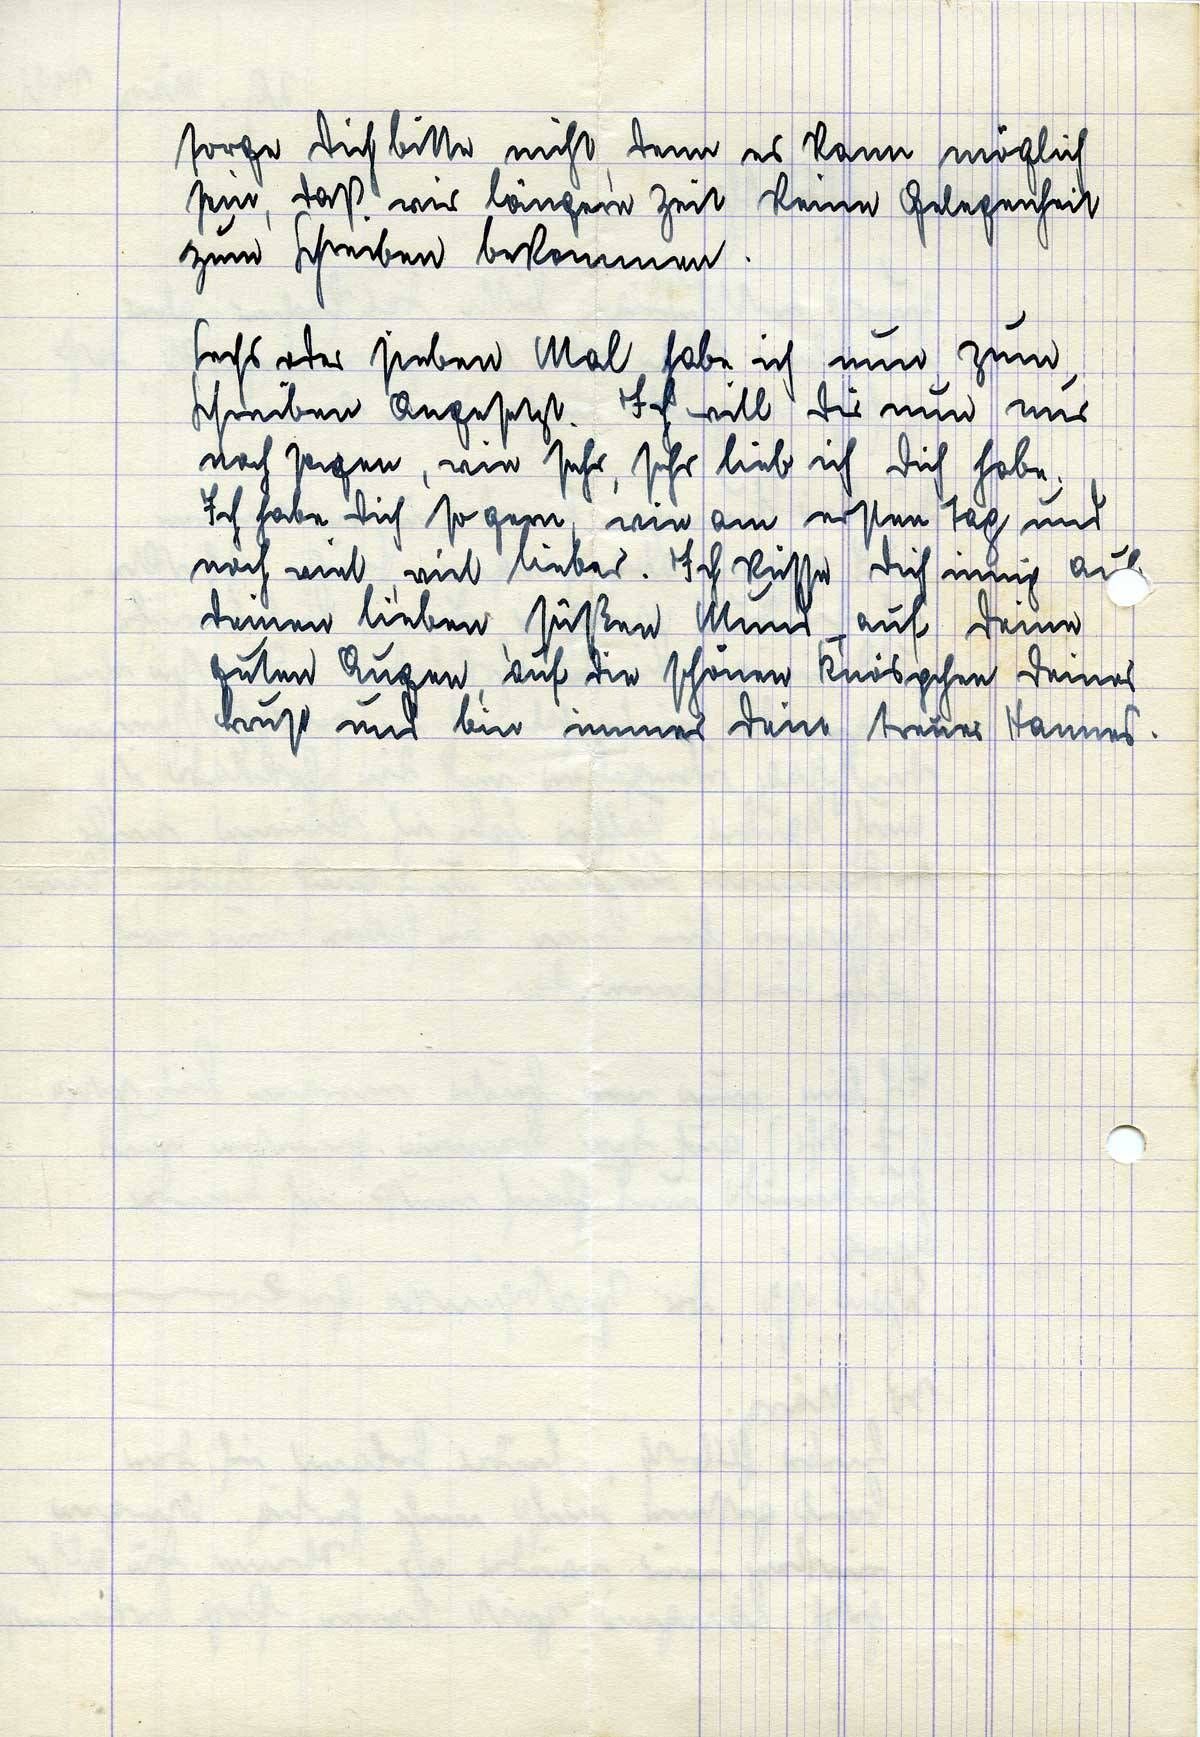 sorge Dich bitte nicht, denn es kann möglich
sein, daß wir längere Zeit keine Gelegenheit
zum Schreiben bekommen.
Sechs oder sieben Mal habe ich nun zum
Schreiben Angesetzt. Ich will Dir nun nur
noch sagen, wie sehr, sehr lieb ich Dich habe.
Ich habe Dich so gern, wie am ersten Tag und
noch viel, viel lieber. Ich küsse Dich innig auf
Deinen lieben süßen Mund, auf Deine
guten Augen, auf die schönen Knöspchen Deiner
Brust und bin immer Dein treuer Hannes.